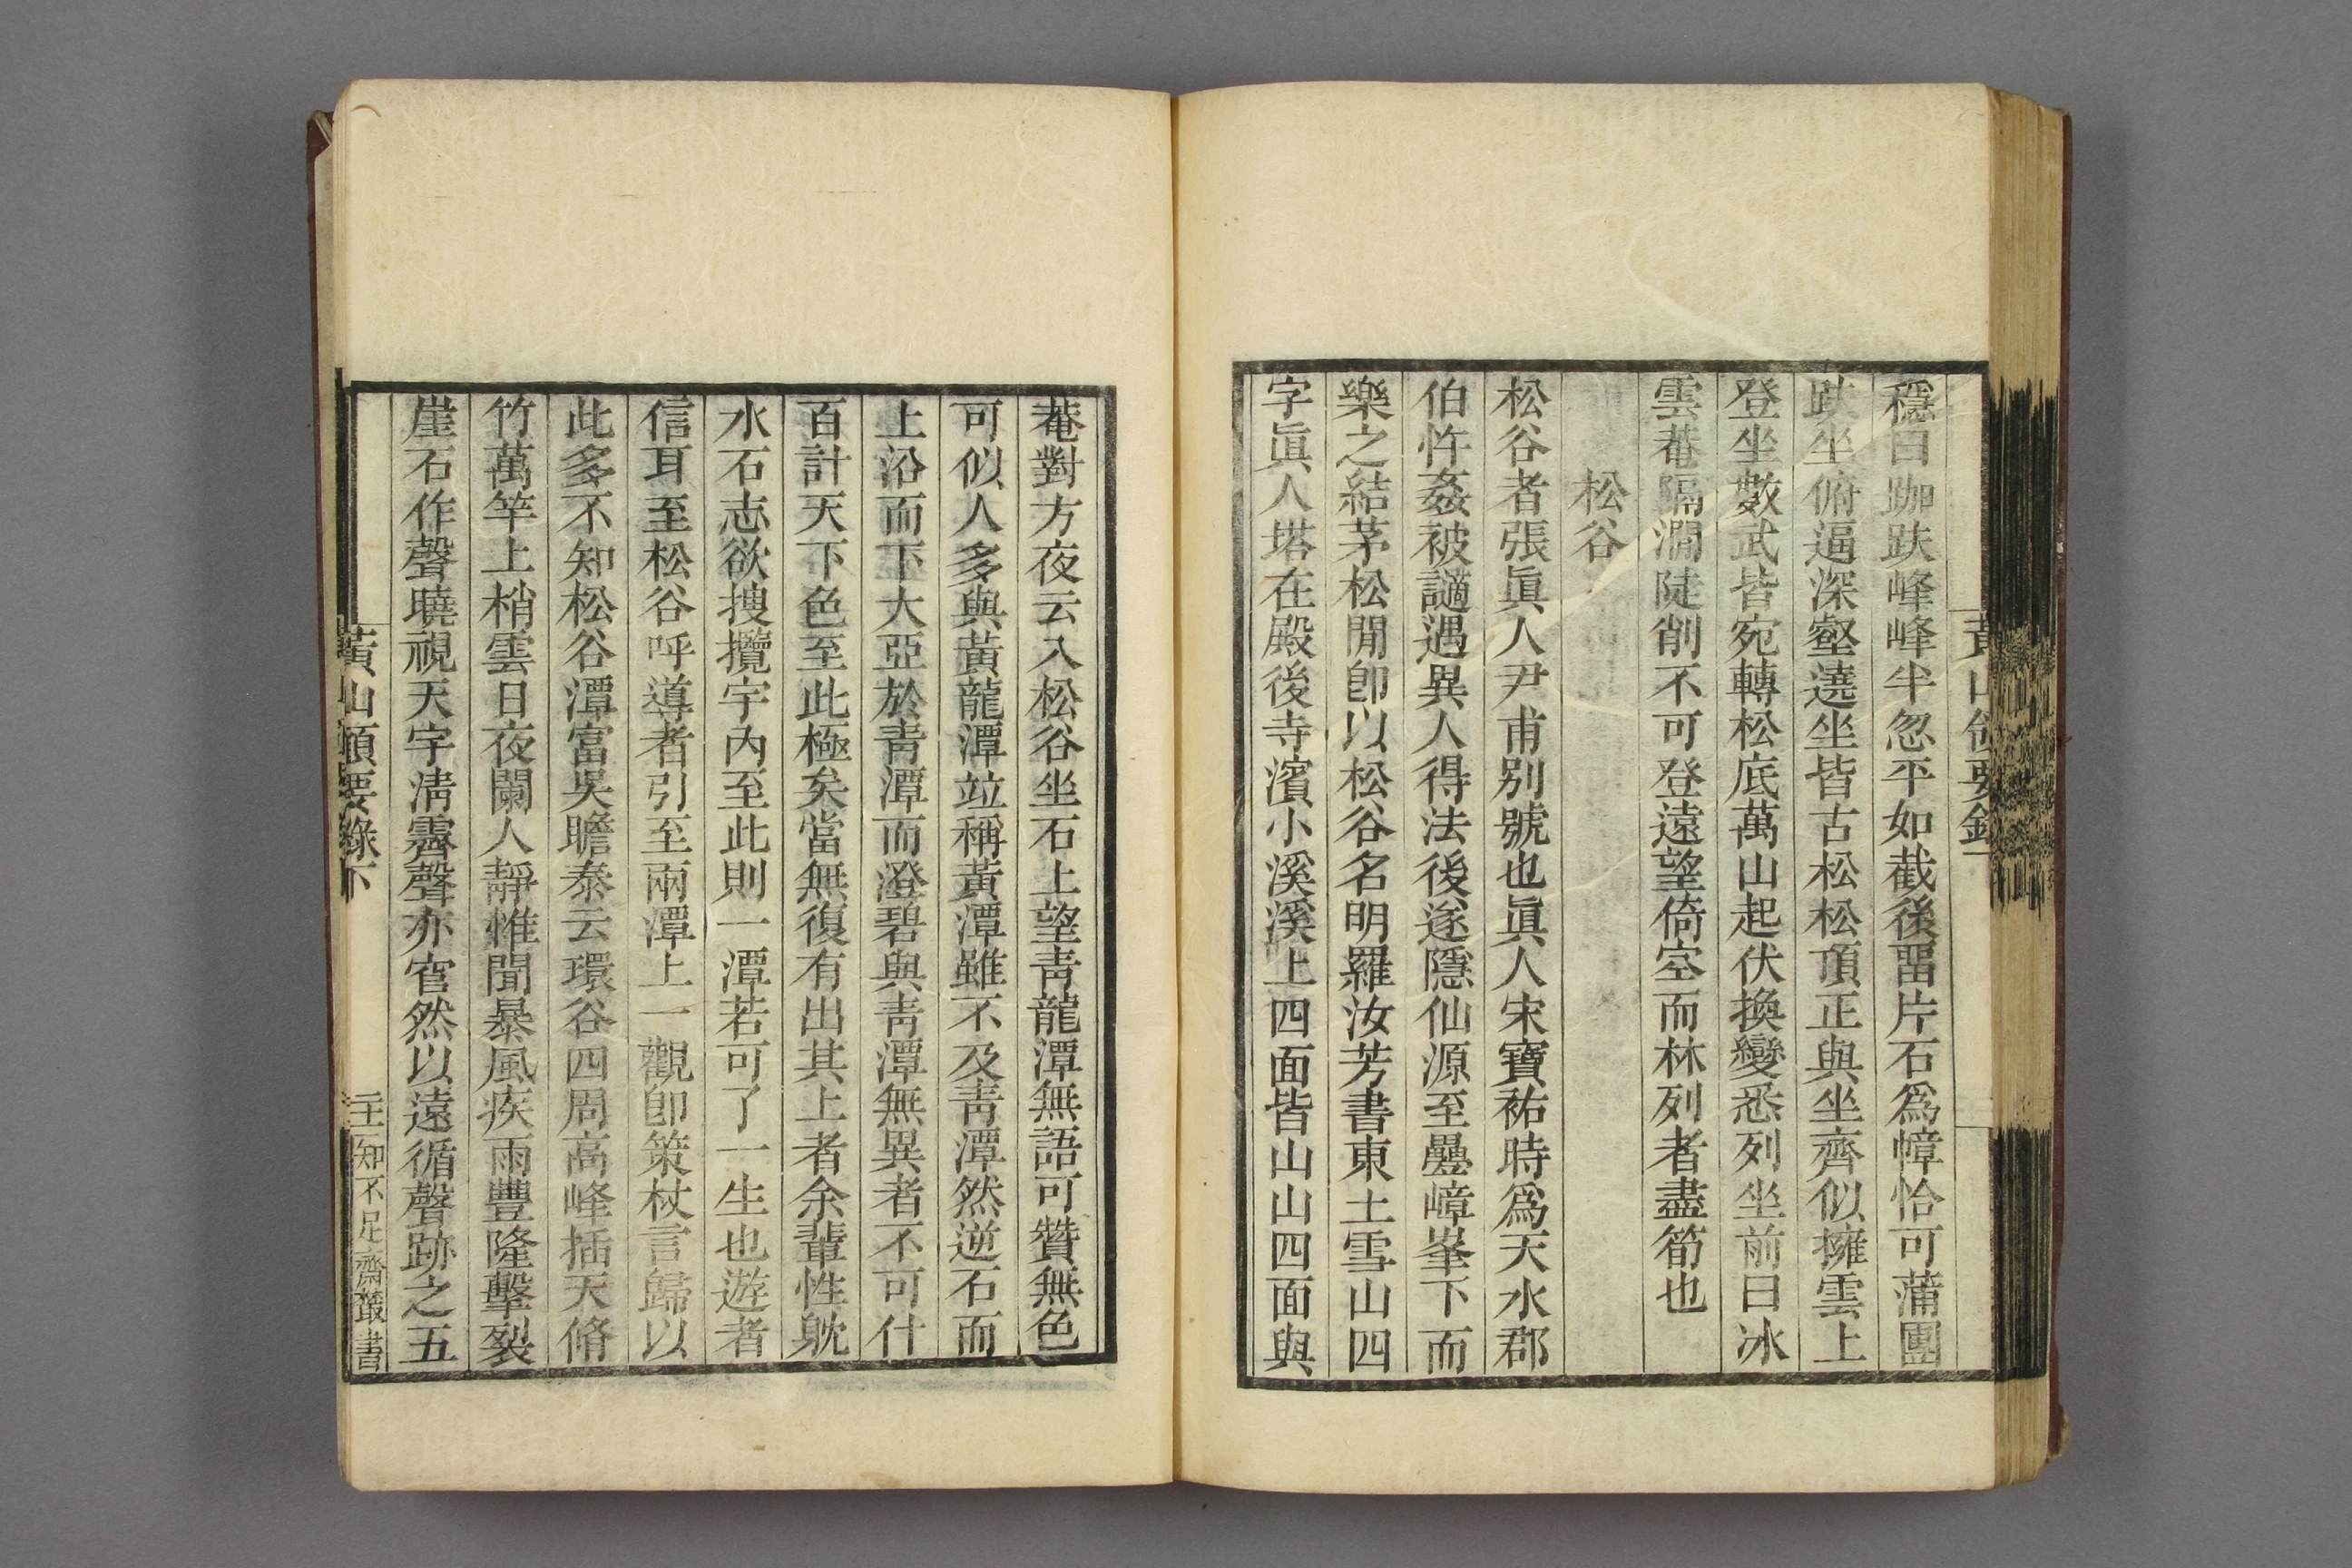 黃山領要錄下
穩曰跏趺峰峰半忽平如截後畱片石爲幛恰可蒲團
趺坐俯逼深壑遶坐皆古松松頂正與坐齊似擁雲上
登坐數武皆宛轉松底萬山起伏換變悉列坐前曰冰
雲菴隔澗陡削不可登遠望倚空而林列者盡筍也
松谷
松谷者張眞人尹甫别號也眞人宋寶祐時爲天水郡
伯忤姦被謫遇異人得法後遂隱仙源至疊嶂峯下而
樂之結茅松閒卽以松谷名明羅汝芳書東土雪山四
字眞人塔在殿後寺濱小溪溪上四面皆山山四面與
菴對方夜云入松谷坐石上望靑龍潭無語可贊無色
可似人多與黃龍潭竝稱黃潭雖不及靑潭然逆石而
上沿而下大亞於靑潭而澄碧與靑潭無異者不可什
百計天下色至此極矣當無復有出其上者余輩性躭
水石志欲搜攬宇內至此則一潭若可了一生也遊者
信耳至松谷呼導者引至兩潭上一觀卽策杖言歸以
此多不知松谷潭富吳瞻泰云環谷四周高峰插天脩
竹萬竿上梢雲日夜闌人靜惟聞暴風疾雨豐隆擊裂
崖石作聲曉視天宇淸霽聲亦窅然以遠循聲跡之五
黃山領要錄下
知不足齋叢書